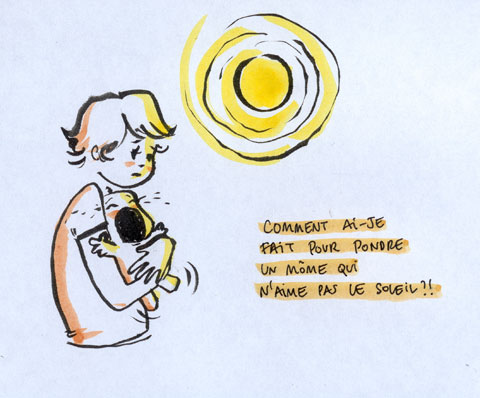 COMMENT AI-JE
FAIT POUR PONDRE
UN MÔME QUI
N'AIME PAS LE SOLEIL?!